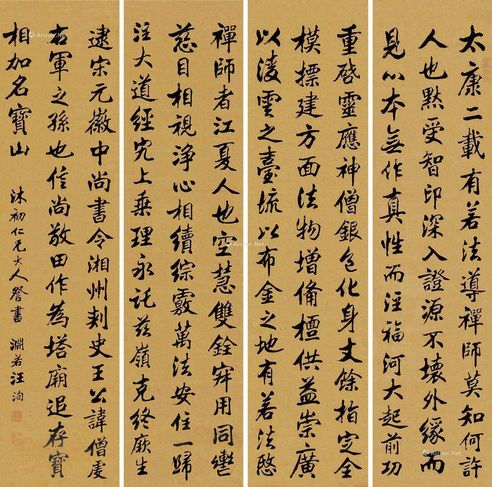 太康二載有若法導禪師莫知何許
人也默受智印深入證源不壞外緣而
見心本無作真性而注福河大起前功
重啟靈應神僧銀色化身丈餘指定全
模標建方面法物增備檀供益崇廣
以淩雲之臺疏以布金之地有若法愍
禪師者江夏人也空慧雙銓寂用同轡
慈目相視淨心相續綜覈萬法安住一歸
注大道經究上乘理永託茲嶺克終厥生
逮宋元徽中尚書令湘州刺史王公諱僧虔
右軍之孫也信尚敬田作為塔廟追存寶
相加名寶山
沐初仁兄大人詧書 淵若汪洵